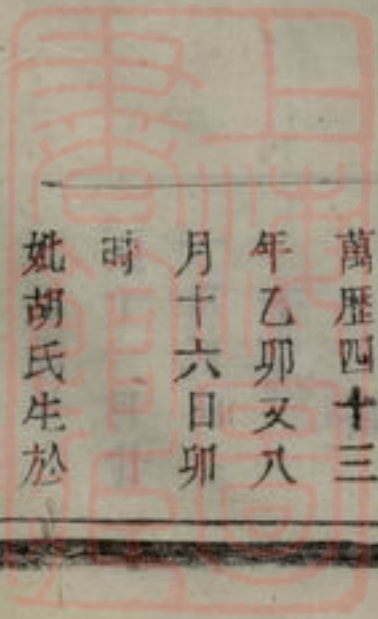 萬歷四十三
年乙卯又八
月十六日卯
時
妣胡氏生於